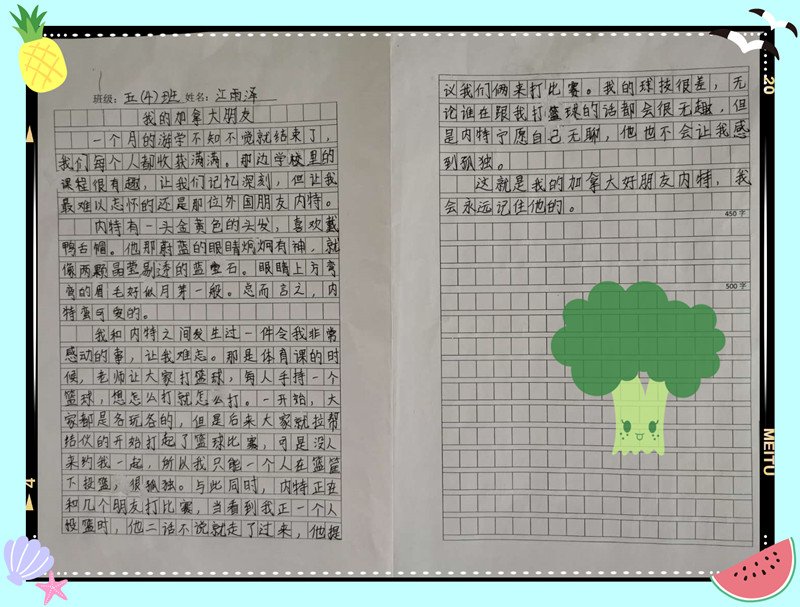 班级：五(4)班 姓名：江雨泽
我的加拿大朋友
一个月的游学不知不觉就结束了，
我们每个人都收获满满。那边学校里的
课程很有趣，让我们记忆深刻，但让我
最难以忘怀的还是那位外国朋友内特。
内特有一头金黄色的头发，喜欢戴
鸭舌帽。他那蔚蓝的眼睛炯炯有神，就
像两颗晶莹剔透的蓝宝石。眼睛上方弯
弯的眉毛好似月芽一般。总而言之，内
特蛮可爱的。
我和内特之间发生过一件令我非常
感动的事，让我难忘。那是体育课的时
候，老师让大家打篮球，每人手持一个
篮球，想怎么打就怎么打。一开始，大
家都是各玩各的，但是后来大家就拉帮
结伙的开始打起了篮球比赛，可是没人
来约我一起，所以我只能一个人在篮筐
下投篮，很孤独。与此同时，内特正在
和几个朋友打比赛，当看到我正一个人
投篮时，他二话不说就走了过来，他提
议我们俩来打比赛。我的球技很差，无
论谁在跟我打篮球的话都会很无趣，但
是内特宁愿自己无聊，他也不会让我感
到孤独。
这就是我的加拿大好朋友内特，我
会永远记住他的。
450 字
500 字
20
MEITU
4